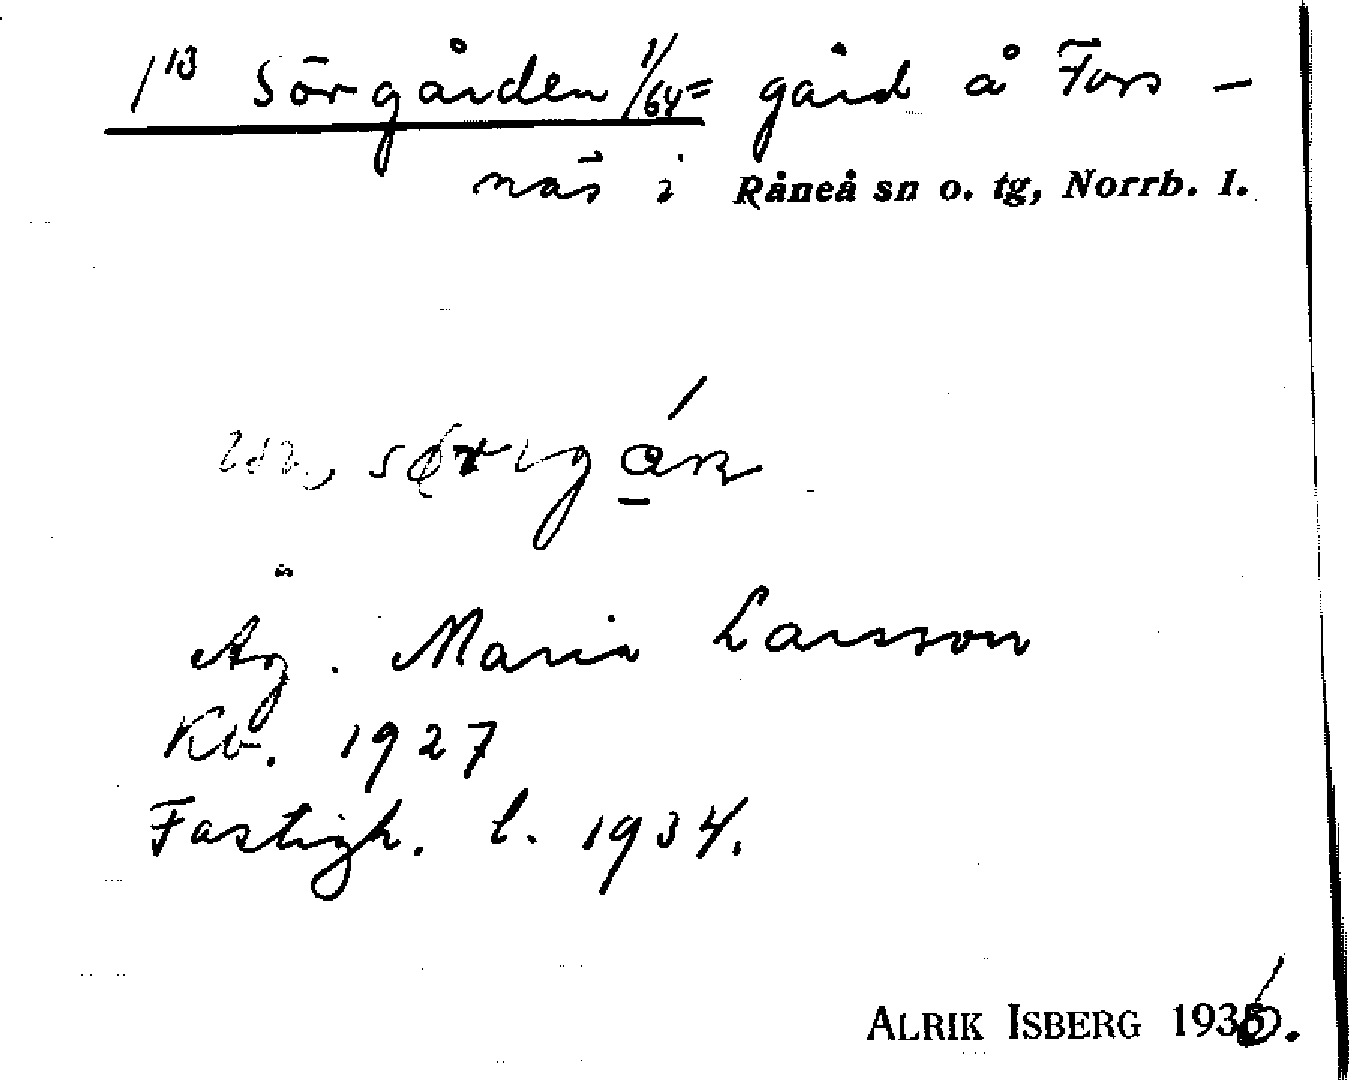 1¹³ Sörgården 1/64 = gård å Fors-
näs i Råneå sn o. tg, Norrb. l.
Äg. Maria Larsson
Kb. 1927
Fastigh. l. 1934.
ALRIK ISBERG 1936.